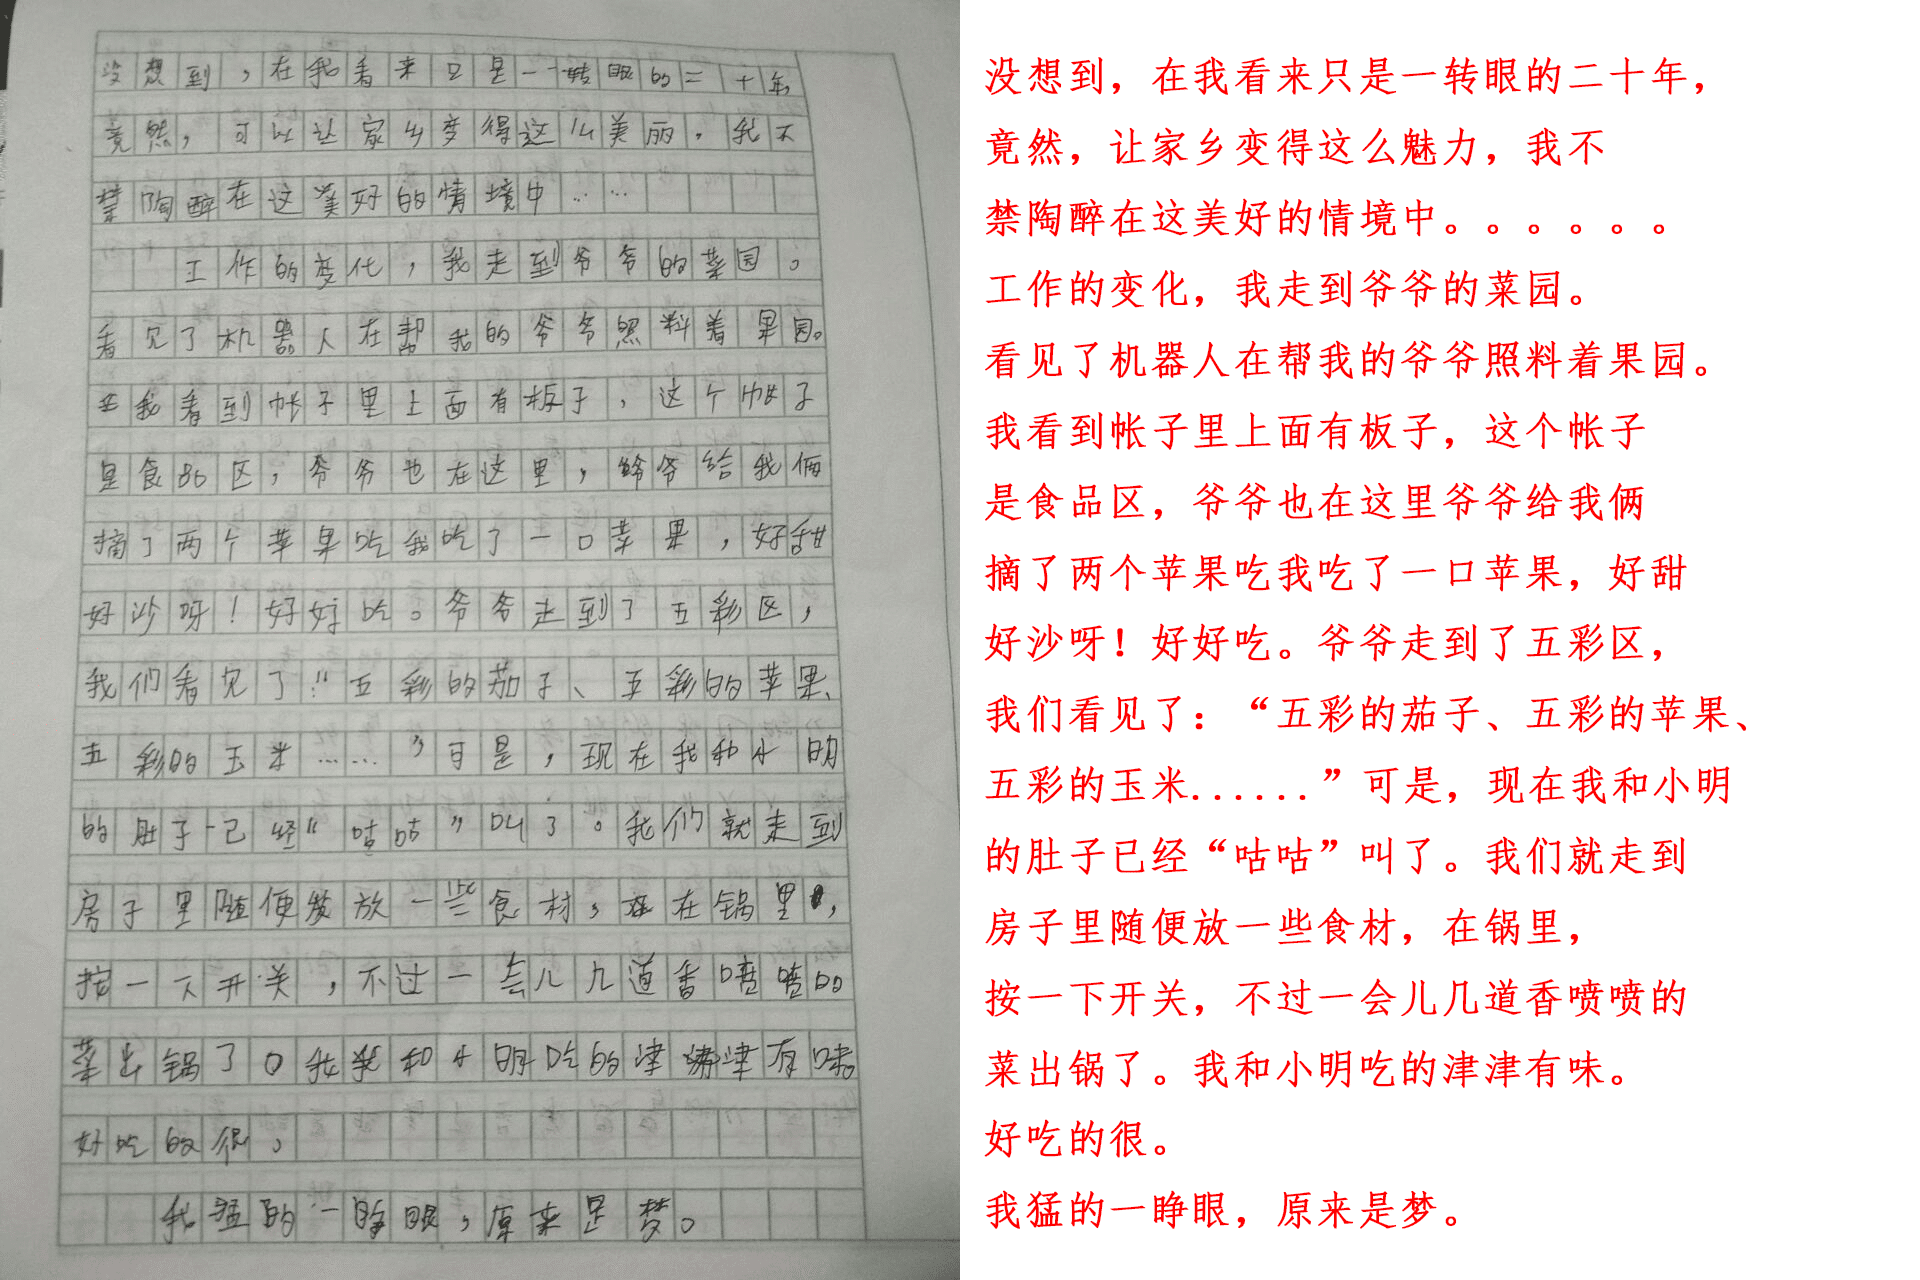 没想到，在我看来只是一转眼的二十年，
竟然，可以让家乡变得这么美丽，我不
禁陶醉在这美好的情境中……
工作的变化，我走到爷爷的菜园。
看见了机器人在帮我的爷爷照料着果园。
我看到帐子里上面有板子，这个帐子
是食品区，爷爷也在这里，爷爷给我俩
摘了两个苹果吃我吃了一口苹果，好甜
好沙呀！好好吃。爷爷走到了五彩区，
我们看见了：“五彩的茄子、五彩的苹果、
五彩的玉米……”可是，现在我和小明
的肚子已经“咕咕”叫了。我们就走到
房子里随便放一些食材，在锅里，
按一下开关，不过一会儿几道香喷喷的
菜出锅了。我我和小明吃的津津有味。
好吃的很。
我猛的一睁眼，原来是梦。
没想到，在我看来只是一转眼的二十年，
竟然，让家乡变得这么魅力，我不
禁陶醉在这美好的情境中。。。。。。
工作的变化，我走到爷爷的菜园。
看见了机器人在帮我的爷爷照料着果园。
我看到帐子里上面有板子，这个帐子
是食品区，爷爷也在这里爷爷给我俩
摘了两个苹果吃我吃了一口苹果，好甜
好沙呀！好好吃。爷爷走到了五彩区，
我们看见了：“五彩的茄子、五彩的苹果、
五彩的玉米......”可是，现在我和小明
的肚子已经“咕咕”叫了。我们就走到
房子里随便放一些食材，在锅里，
按一下开关，不过一会儿几道香喷喷的
菜出锅了。我和小明吃的津津有味。
好吃的很。
我猛的一睁眼，原来是梦。